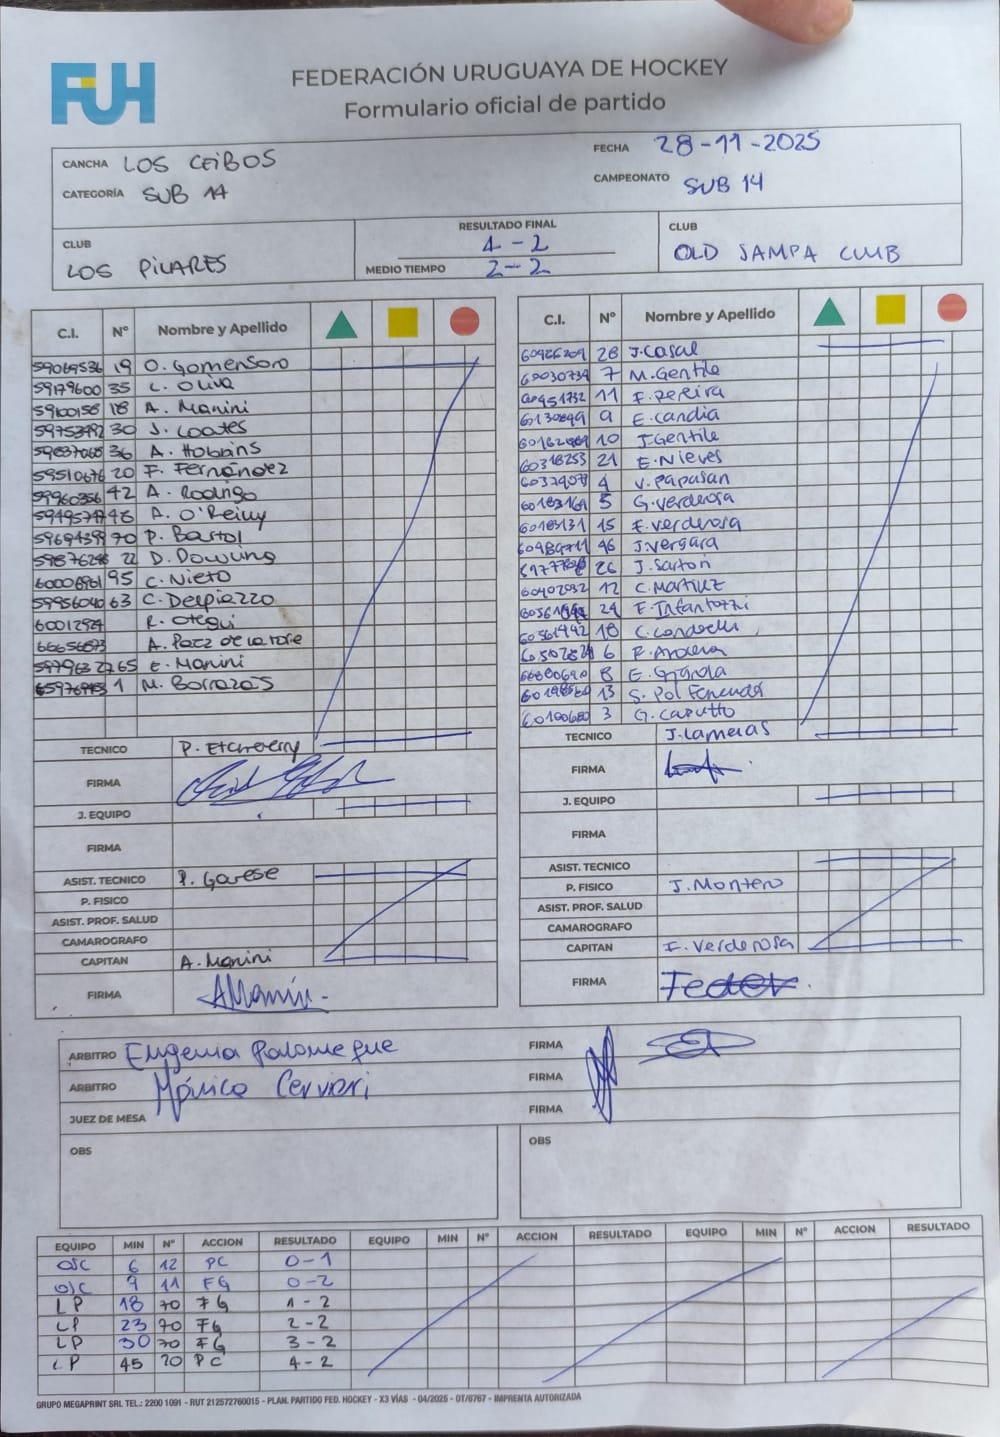 FUH
FEDERACIÓN URUGUAYA DE HOCKEY
Formulario oficial de partido
CANCHA LOS CEIBOS
FECHA 28-11-2025
CATEGORÍA SUB 14
CAMPEONATO SUB 14
CLUB LOS PILARES
RESULTADO FINAL 4 - 2
MEDIO TIEMPO 2 - 2
CLUB OLD SAMPA CLUB
C.I. Nº Nombre y Apellido
59069536 19 O. Gomensoro
59179600 35 L. Oliva
59100158 18 A. Manini
30 J. Coates
36 A. Hobbins
59510676 20 F. Fernández
59960356 42 A. Rodrigo
A. O'Reilly
70 P. Bartol
22 D. Dowling
95 C. Nieto
59956040 63 C. Delpiazzo
60012924 R. Otegui
A. Paez de la
65 E. Manini
1 M. Borrazás
TECNICO P. Etcheverry
FIRMA
J. EQUIPO
FIRMA
ASIST. TECNICO P. Garese
P. FISICO
ASIST. PROF. SALUD
CAMAROGRAFO
CAPITAN A. Manini
FIRMA AManini
C.I. Nº Nombre y Apellido
28 J. Casal
60030739 7 M. Gentile
11 F. Pereira
60130899 9 E. Candia
10 J. Gentile
60318253 21 E. Nieves
4 V. Papasan
60183169 5 G. Verderosa
60183131 15 F. Verderosa
46 J. Vergara
26 J. Sartori
60402092 12 C.
24 F. Infantozzi
60561442 18 C.
6 R.
8 E.
13 S. Pol Fernandez
60100680 3 G. Caputto
TECNICO J. Lameras
FIRMA
J. EQUIPO
FIRMA
ASIST. TECNICO
P. FISICO J. Montero
ASIST. PROF. SALUD
CAMAROGRAFO
CAPITAN F. Verderosa
FIRMA
ARBITRO Eugenia Palomeque FIRMA
ARBITRO Mónica Cerviari FIRMA
JUEZ DE MESA FIRMA
OBS
OBS
EQUIPO MIN Nº ACCION RESULTADO EQUIPO MIN Nº ACCION RESULTADO EQUIPO MIN Nº ACCION RESULTADO
OSC 6 12 PC 0-1
OSC 9 11 FG 0-2
LP 18 70 FG 1-2
LP 23 70 FG 2-2
LP 30 70 FG 3-2
LP 45 70 PC 4-2
GRUPO MEGAPRINT SRL TEL.: 2200 1091 - RUT 212572760015 - PLAN. PARTIDO FED. HOCKEY - X3 VÍAS - 04/2025 - OT/6767 - IMPRENTA AUTORIZADA